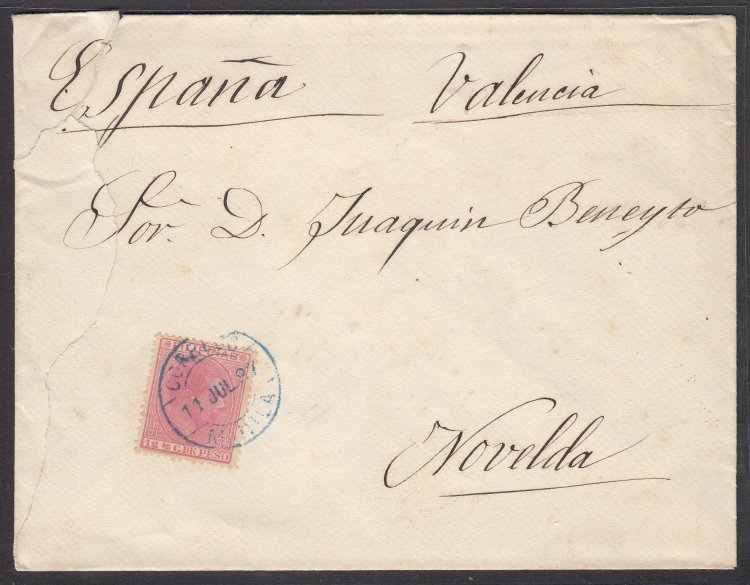 España Valencia
Sor. D. Juaquin Beneyto
FILIPINAS
CORREOS
11 JUL
MANILA
12 4/8 C. DE PESO
Novelda